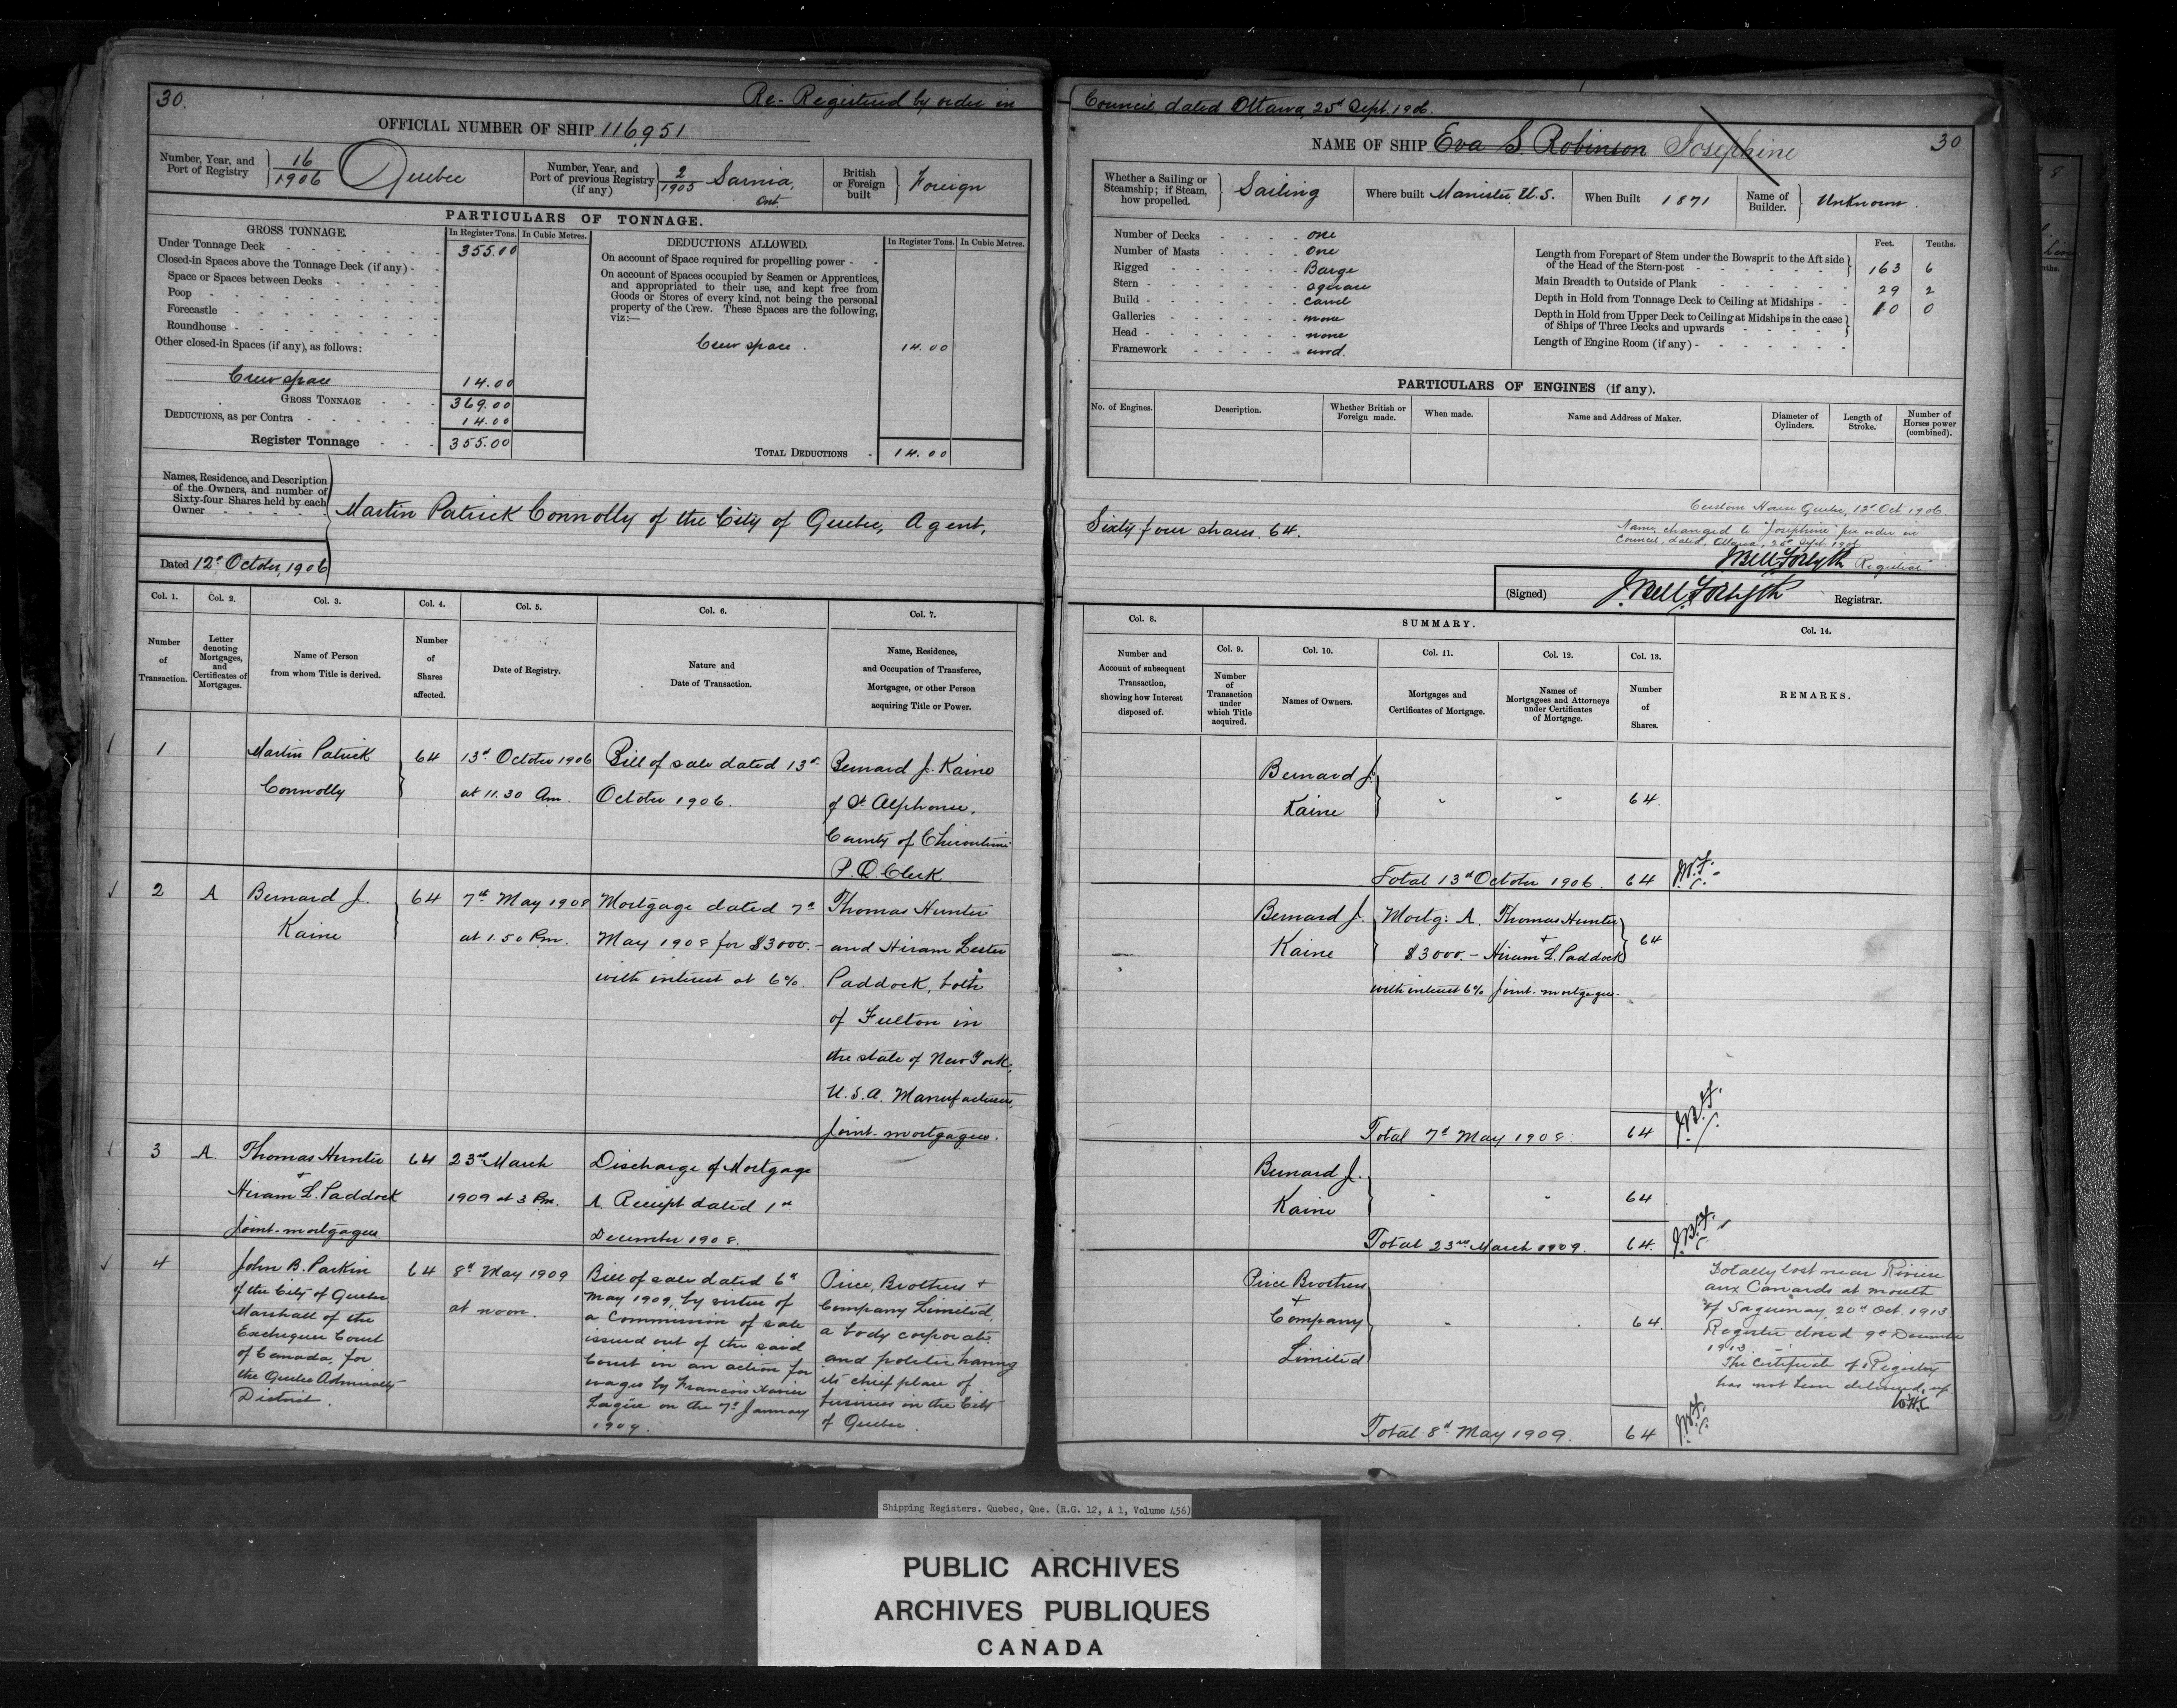 30.
Re-Registered by order in
OFFICIAL NUMBER OF SHIP 116,951
Number, Year, and Port of Registry } 16/1906 Quebec
Number, Year, and Port of previous Registry (if any) } 2/1905 Sarnia, Ont.
British or Foreign built } Foreign
PARTICULARS OF TONNAGE.
GROSS TONNAGE. In Register Tons. In Cubic Metres.
Under Tonnage Deck 355.00
Closed-in Spaces above the Tonnage Deck (if any)
Space or Spaces between Decks
Poop
Forecastle
Roundhouse
Other closed-in Spaces (if any), as follows:
Crew space 14.00
GROSS TONNAGE 369.00
DEDUCTIONS, as per Contra 14.00
Register Tonnage 355.00
DEDUCTIONS ALLOWED. In Register Tons. In Cubic Metres.
On account of Space required for propelling power
On account of Spaces occupied by Seamen or Apprentices,
and appropriated to their use, and kept free from
Goods or Stores of every kind, not being the personal
property of the Crew. These Spaces are the following,
viz:—
Crew space. 14.00
TOTAL DEDUCTIONS 14.00
Names, Residence, and Description
of the Owners, and number of
Sixty-four Shares held by each
Owner
Martin Patrick Connolly of the City of Quebec, Agent,
Dated 12th October, 1906
Col. 1. Col. 2. Col. 3. Col. 4. Col. 5. Col. 6. Col. 7.
Number of Transaction.
Letter denoting Mortgages, and Certificates of Mortgages.
Name of Person from whom Title is derived.
Number of Shares affected.
Date of Registry.
Nature and Date of Transaction.
Name, Residence, and Occupation of Transferee, Mortgagee, or other Person acquiring Title or Power.
1
Martin Patrick
Connolly
64
13th October 1906
at 11.30 Am.
Bill of sale dated 13th
October 1906.
Bernard J. Kaine
of St Alphonse,
County of Chicoutimi
P.Q. Clerk.
2 A
Bernard J.
Kaine
64
7th May 1908
at 1.50 Pm.
Mortgage dated 7th
May 1908 for $3000.-
with interest at 6%.
Thomas Hunter
and Hiram Lester
Paddock, both
of Fulton in
the state of New York,
U.S.A. Manufacturers,
Joint-mortgagees.
3 A.
Thomas Hunter
+
Hiram L. Paddock
Joint-mortgagees
64
23rd March
1909 at 3 Pm.
Discharge of Mortgage
A. Receipt dated 1st
December 1908.
4
John B. Parkin
of the City of Quebec
Marshall of the
Exchequer Court
of Canada, for
the Quebec Admiralty
District.
64
8th May 1909
at noon.
Bill of sale dated 6th
May 1909, by virtue of
a Commission of sale
issued out of the said
Court in an action for
wages by Francois Xavier
on the 7th January
1909.
Price, Brothers +
Company Limited,
a body corporate
and politic having
its chief place of
business in the City
of Quebec.
Council, dated Ottawa, 25th Sept. 1906.
NAME OF SHIP Eva S. Robinson Josephine
30
Whether a Sailing or Steamship; if Steam, how propelled. } Sailing
Where built Manistee U.S.
When Built 1871
Name of Builder. } Unknown.
Number of Decks one
Number of Masts One
Rigged Barge
Stern square
Build carvel
Galleries none
Head none
Framework wood.
Feet. Tenths.
Length from Forepart of Stem under the Bowsprit to the Aft side
of the Head of the Stern-post 163 6
Main Breadth to Outside of Plank 29 2
Depth in Hold from Tonnage Deck to Ceiling at Midships 10 0
Depth in Hold from Upper Deck to Ceiling at Midships in the case
of Ships of Three Decks and upwards
Length of Engine Room (if any)
PARTICULARS OF ENGINES (if any).
No. of Engines. Description. Whether British or Foreign made. When made. Name and Address of Maker. Diameter of Cylinders. Length of Stroke. Number of Horses power (combined).
Custom House Quebec, 12th Oct 1906.
Sixty four shares. 64.
Name changed to "Josephine" per order in
Council, dated, Ottawa, 25th Sept. 1906
J Bell Forsyth Registrar
(Signed) J. Bell Forsyth Registrar.
Col. 8. SUMMARY. Col. 14.
Col. 9. Col. 10. Col. 11. Col. 12. Col. 13.
Number and Account of subsequent Transaction, showing how Interest disposed of.
Number of Transaction under which Title acquired.
Names of Owners.
Mortgages and Certificates of Mortgage.
Names of Mortgagees and Attorneys under Certificates of Mortgage.
Number of Shares.
REMARKS.
Bernard J.
Kaine
64.
Total 13th October 1906. 64 J.B.F.
Bernard J.
Kaine
Mortg: A.
$3000.-
with interest 6%
Thomas Hunter
+
Hiram L. Paddock
Joint-mortgagees.
64
Total 7th May 1908. 64 J.B.F.
Bernard J.
Kaine
64
Total 23rd March 1909. 64. J.B.F.
Price Brothers
+
Company
Limited
64.
Totally lost near Riviere
aux Canards at mouth
of Saguenay, 20th Oct. 1913.
Register closed 9th December
1913.
The Certificate of Registry
has not been delivered up.
Total 8th May 1909. 64 J.B.F.
Shipping Registers. Quebec, Que. (R.G. 12, A 1, Volume 456)
PUBLIC ARCHIVES
ARCHIVES PUBLIQUES
CANADA